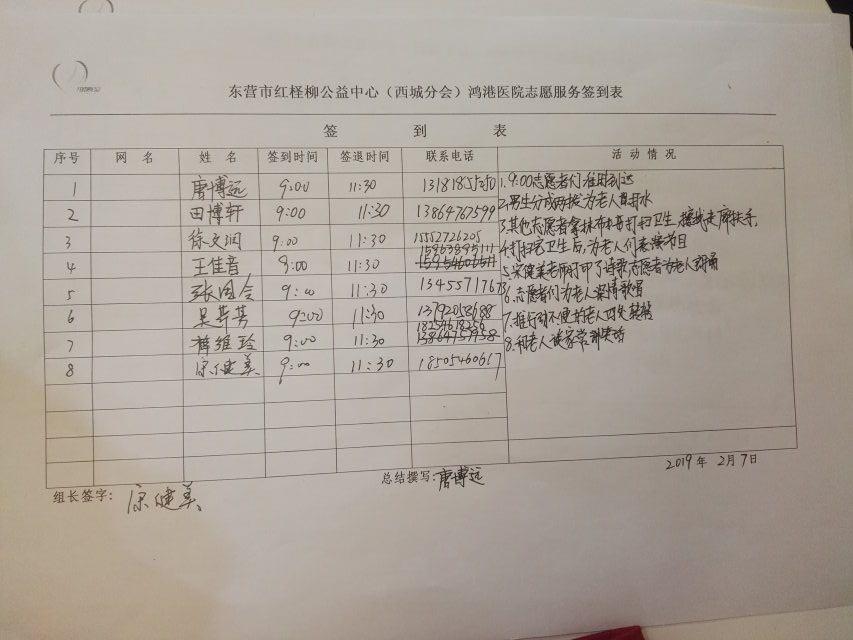 东营市红柽柳公益中心（西城分会）鸿港医院志愿服务签到表
签 到 表
序号 网 名 姓 名 签到时间 签退时间 联系电话 活 动 情 况
1 唐博远 9:00 11:30 1.9:00志愿者们准时到达
2 田博轩 9:00 11:30 13864767599 2.男生分成两拨为老人打水
3 徐文润 9:00 11:30 15552726205 3.其他志愿者拿抹布打扫卫生,擦走廊扶手,
4 王佳音 9:00 11:30 15963895111 4.打扫完卫生后,为老人们表演节目
5 9:00 11:30 5.宋健美老师打印了诗歌,志愿者为老人朗诵
6 9:00 11:30 13792058688 6.志愿者们为老人深情歌唱
7 9:00 11:30 18254618256 7.推行动不便的老人回
8 宋健美 9:00 11:30 18505460617 8.和老人谈家常
2019年 2月7日
组长签字: 宋健美
总结撰写:唐博远